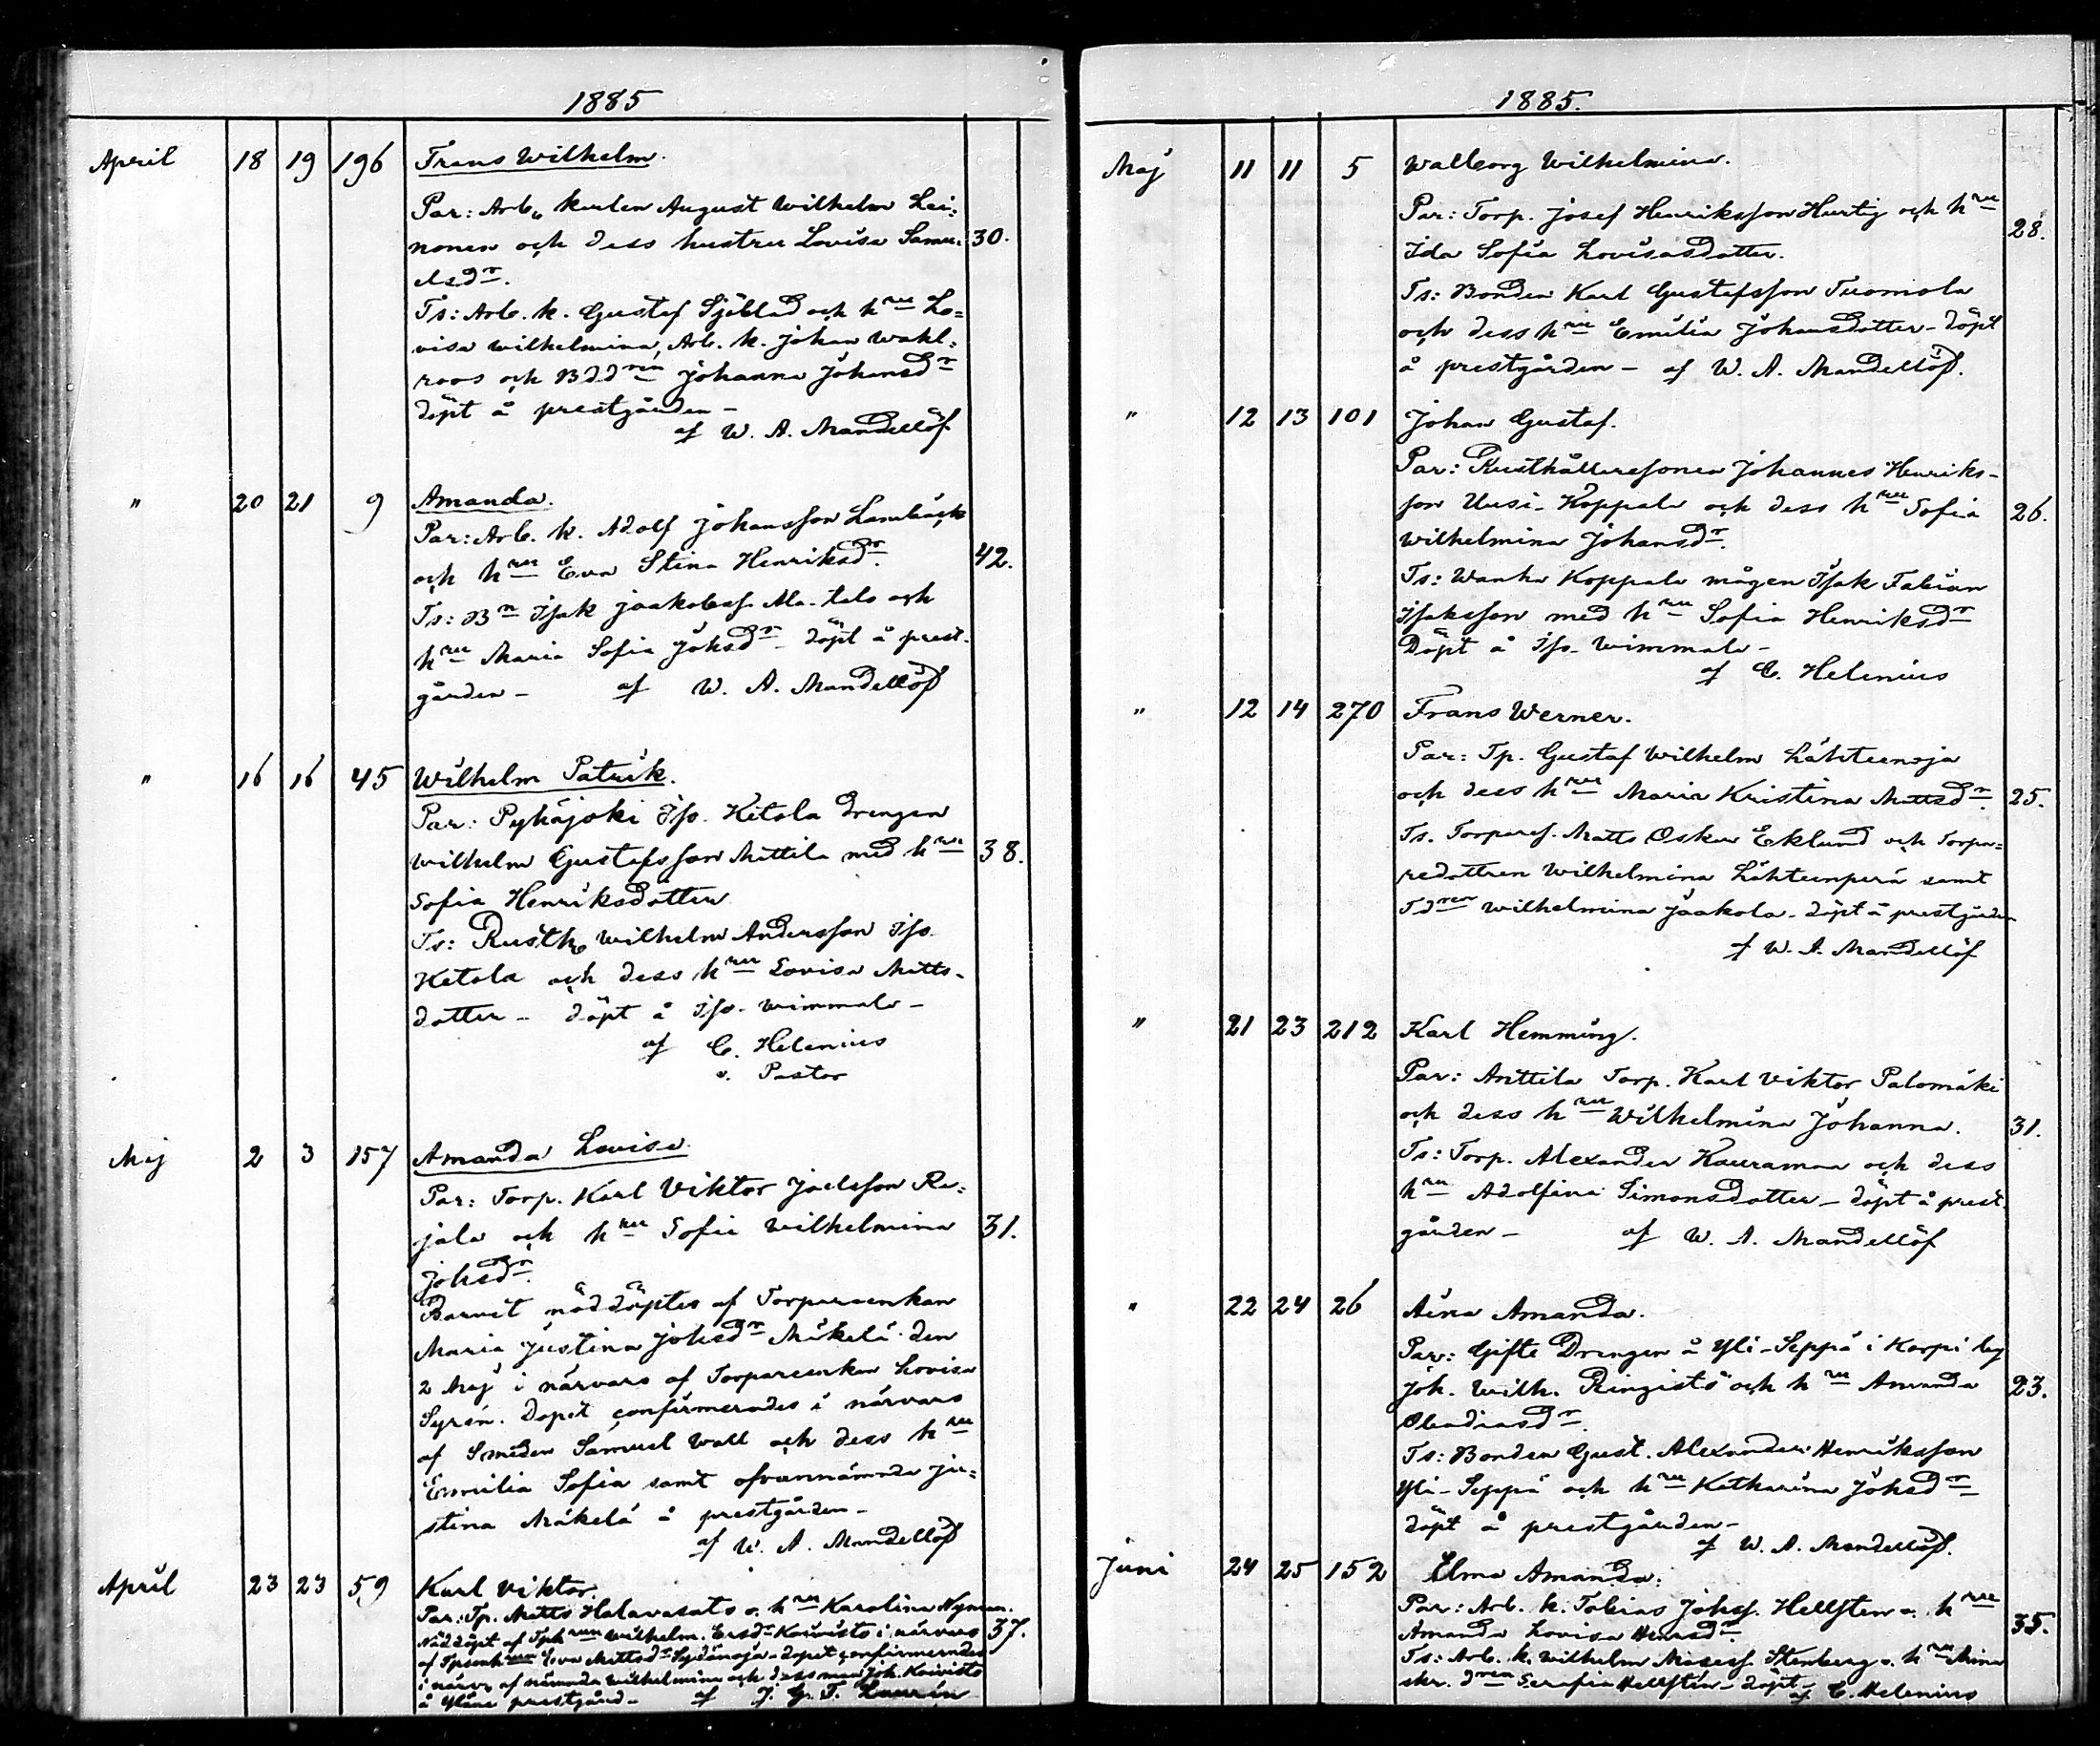 1885
April 18 19 196 Frans Wilhelm.
Par: Arb. karlen August Wilhelm Lei=
nonen och dess hustru Lovisa Samu= 30.
elsdr.
Ts: Arb. k. Gustaf Sjöblad och hru Lo=
visa Wilhelmina, Arb. k. Johan Wahl=
roos och Bddren Johanna Johansdr
döpt å prestgården –
af W. A. Mandellöf
" 20 21 9 Amanda.
Par: Arb. k. Adolf Johansson Lambäck
och hru Eva Stina Henriksdr. 42.
Ts: Bn Isak Jaakobss. Ala-talo och
hru Maria Sofia Johsdr – döpt å prest-
gården – af W. A. Mandellöf
" 16 16 45 Wilhelm Patrik.
Par: Pyhäjoki Iso-Ketola Drengen
Wilhelm Gustafsson Mattila med hru 38.
Sofia Henriksdotter
Ts: Rusth. Wilhelm Andersson Iso-
Ketola och dess hru Lovisa Matts-
dotter – döpt å Iso-Wimmala –
af C. Helenius
v. Pastor
Maj 2 3 157 Amanda Lovisa.
Par: Torp. Karl Viktor Joelsson Ra=
jala och hru Sofia Wilhelmina 31.
Johsdr.
Barnet nöddöptes af Torpareenkan
Maria Justina Johsdr Mäkelä den
2 Maj i närvaro af Torpareenkan Lovisa
Syrén. Dopet confirmerades i närvaro
af Smeden Samuel Wall och dess hru
Emilia Sofia samt ofvannämnda Ju=
stina Mäkelä å prestgården –
af W. A. Mandellöf
April 23 23 59 Karl Viktor.
Par: Tp. Matts Halavasato o. hru Karolina Nyman.
Nöddöpt af Tphrun Wilhelm. Ersdr Koivisto i närvaro 37.
af Tpenk Eva Mattsdr Sydänoja – dopet confirmerades
i närv. af nämnda Wilhelmina och dess man Joh. Koivisto
å Yläne prestgård – af J. G. T. Laurén
1885.
Maj 11 11 5 Walborg Wilhelmina.
Par: Torp. Josef Henriksson Hurtig och hru 28.
Ida Sofia Lovisasdotter.
Ts: Bonden Karl Gustafsson Tuomola
och dess hru Emilia Johansdotter – döpt
å prestgården – af W. A. Mandellöf.
" 12 13 101 Johan Gustaf.
Par: Rusthållaresonen Johannes Henriks-
son Uusi-Koppala och dess hru Sofia 26.
Wilhelmina Johansdr.
Ts: Wanha Koppala mågen Isak Fabian
Isaksson med hru Sofia Henriksdr
Döpt å Iso-Wimmala –
af C. Helenius
" 12 14 270 Frans Werner.
Par: Tp. Gustaf Wilhelm Lähteenoja
och dess hru Maria Kristina Mattsdr. 25.
Ts. Torpares. Matts Oskar Eklund och Torpa=
redottren Wilhelmina Lähteenperä samt
Tdren Wilhelmina Jaakola – döpt å prestgården
af W. A. Mandellöf
" 21 23 212 Karl Hemming.
Par: Anttila Torp. Karl Viktor Palomäki
och dess hru Wilhelmina Johanna. 31.
Ts: Torp. Alexander Kauramaa och dess
hru Adolfina Simonsdotter – döpt å prest-
gården – af W. A. Mandellöf
" 22 24 26 Aina Amanda.
Par: Gifte Drengen å Yli-Seppä i Korpi by
Joh. Wilh. Ringistö och hru Amanda 23.
Obadiasdr.
Ts: Bonden Gust. Alexander Henriksson
Yli-Seppä och hru Katharina Johsdr
döpt å prestgården –
af W. A. Mandellöf.
Juni 24 25 152 Elma Amanda:
Par: Arb. k. Tobias Johss. Hellsten o. hru 35.
Amanda Lovisa Henrsdr.
Ts: Arb. k. Wilhelm Mosess. Stenberg o. hru Mina
skr. dren Serafia Hellsten – döpt –
af C. Helenius